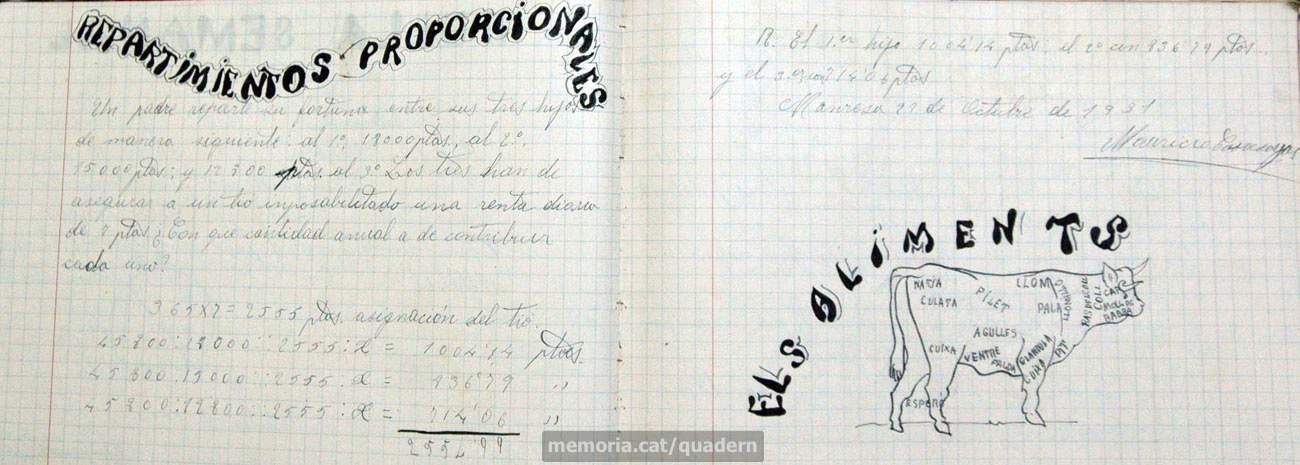 REPARTIMIENTOS PROPORCIONALES
Un padre reparte su fortuna entre sus tres hijos
de manera siguiente: al 1º, 18000 ptas, al 2º,
15000 ptas; y 12800 ptas. al 3º Los tres han de
asegurar a un tio imposabilitado una renta diaria
de 7 ptas ¿Con que cantidad anual a de contribuir
cada uno?
365x7=2555 ptas. asignacion del tio.
45800:18000::2555:x = 1004'14 ptas.
45800:15000::2555:x = 836'79 "
45800:12800::2555:x = 714'06 "
2554'99
R. El 1er hijo 1004'14 ptas, el 2º con 836'79 ptas.
y el 3º con 714'06 ptas
Manresa 22 de Octubre de 1931
Mauricio
ELS ALIMENTS
NATJA
CULATA
PILET
LLOM
PALA
LLOMILLO
COLL
CAP
MOLL DE
BARBA
AGULLES
CUIXA
VENTRE
PALDA
CUIXA
PIT
ESPERÓ
memoria.cat/quadern